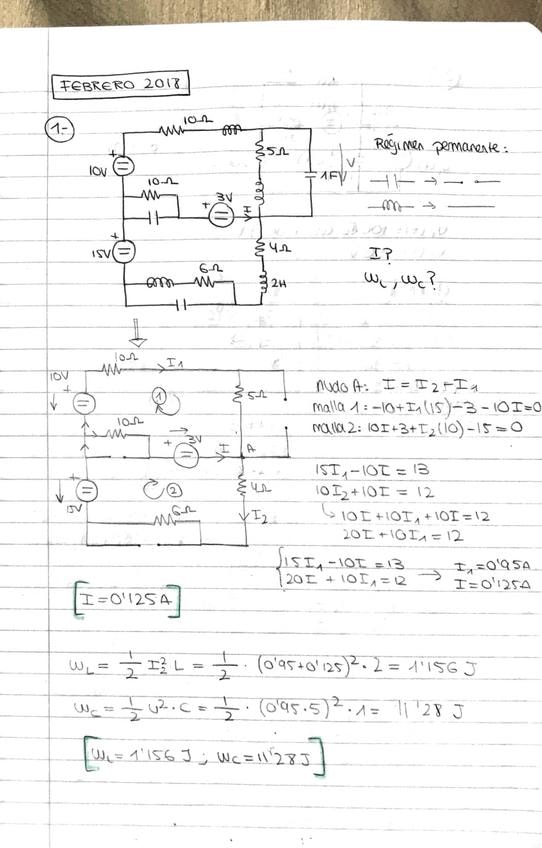 FEBRERO 2018
1.-
10Ω
5Ω
1F
V
Régimen permanente:
10V
10Ω
3V
I
15V
4Ω
6Ω
2H
I?
WL, WC?
10Ω
I1
10V
1
5Ω
10Ω
3V
I
A
15V
2
4Ω
6Ω
I2
nudo A: I = I2 - I1
malla 1: -10+I1(15)-3-10I=0
malla 2: 10I+3+I2(10)-15=0
15I1-10I = 13
10I2+10I = 12
10I+10I1+10I=12
20I+10I1=12
15I1-10I=13
20I+10I1=12 → I1=0'95A
I=0'125A
I=0'125A
WL = 1/2 I2² L = 1/2 · (0'95+0'125)² · 2 = 1'156 J
WC = 1/2 U² · C = 1/2 · (0'95·5)² · 1 = 11'28 J
WL = 1'156 J ; WC = 11'28 J